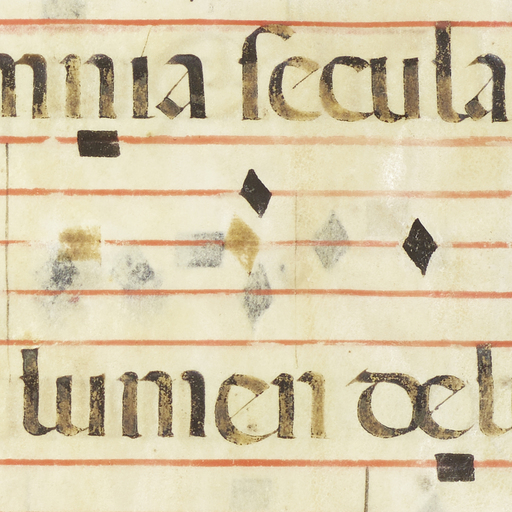 mnia secula
lumen de l